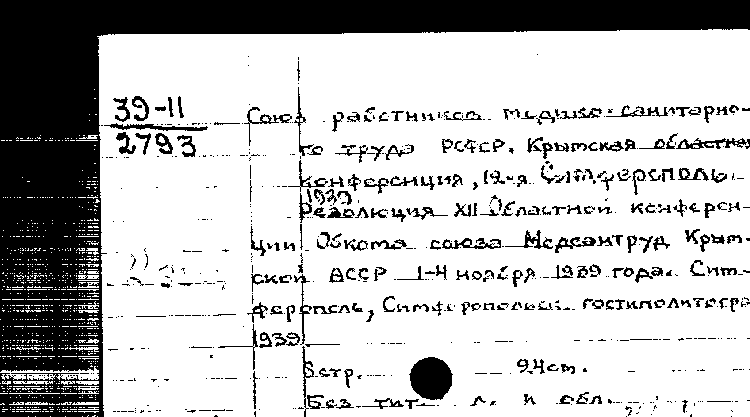 39-11
2793
Союз работников медико-санитарно-
го труда РСФСР. Крымская областная
конференция, 12-я Симферополь.
1939.
Резолюция XII Областной конферен-
ции Обкома союза Медсантруд Крым-
ской АССР 1-4 ноября 1939 года. Сим-
ферополь, Симферопольск. гостиполитогра
1939.
8 стр. 9,4 cm.
Без тит. л. и обл.